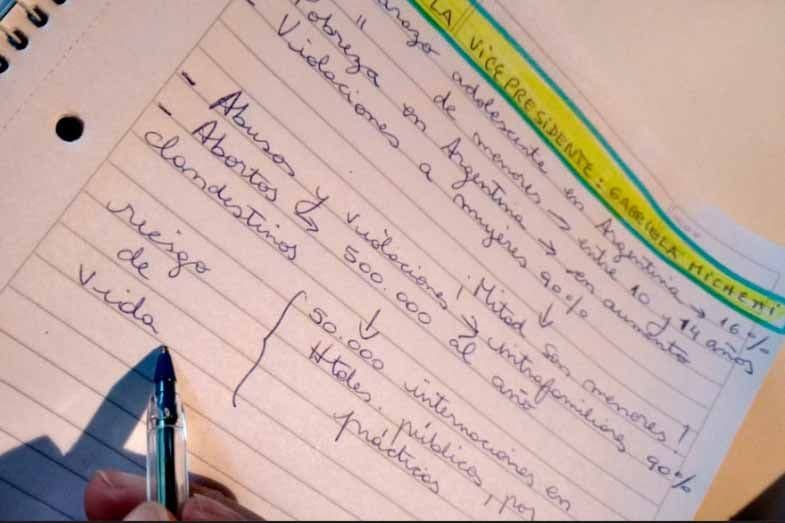 LA VICEPRESIDENTE: GABRIELA MICHETTI
adolescente en Argentina → 16%
" de menores → entre 10 y 14 años
Pobreza en Argentina → en aumento
- Violaciones a mujeres 90%
¡Mitad son menores!
- Abusos y violaciones → intrafamiliares 90%
- Abortos ↳ 500.000 al año
clandestinos
↓
50.000 internaciones en
Htdes. públicos, por
prácticas
riesgo
de
vida